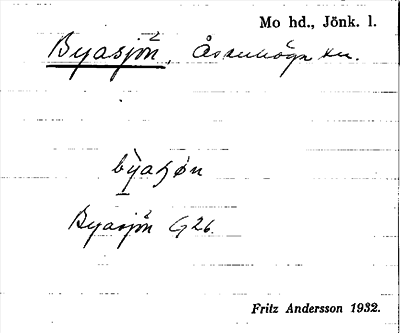 Mo hd., Jönk. l.
Byasjön, Åsenhöga sn.
bỳaʃøn
Byasjön G 26.
Fritz Andersson 1932.